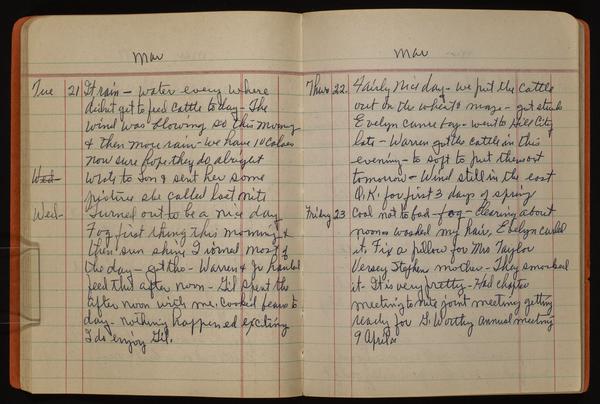 Mar
Tue 21 It rain - water every where
didnt get to feed cattle today - The
wind was blowing so this morning
& then more rain - we have 10 calves
now sure hope they do alright
Wed- wrote to Son & sent her some
picture she called last nite
Wed- Turned out to be a nice day
Fog first thing this morning &
then sun shiny I ironed most of
the day - got the - Warren & Jr hauled
feed this after noon - Gil spent the
after noon with me. Cooked beans to
day - nothing happened exciting
I do enjoy Gil.
Mar
Thurs 22 Fairly nice day - we put the cattle
out on the wheat & maze - got stuck
Evelyn came by - went to City
late - Warren got the cattle in this
evening - to soft to put them out
tomorrow - Wind still in the east
O.K. for first 3 days of spring
Friday 23 Cool not to bad - fog - clearing about
noon washed my hair, Evelyn curled
it. Fix a pillow for Mrs Taylor
Versey Stephen mother - They smocked
it - It is very pretty - Had chapter
meeting to nite joint meeting getting
ready for G. Worthy annual meeting
9 April